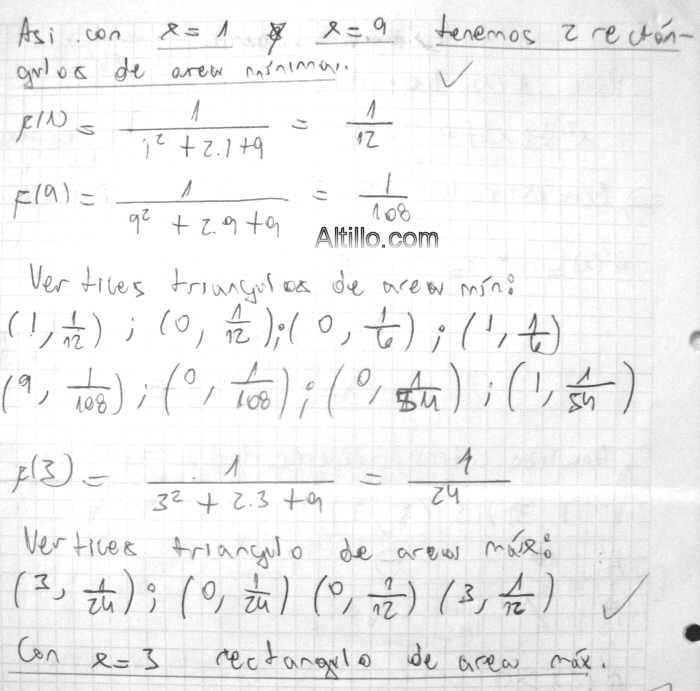 Asi con x=1 y x=9 tenemos 2 rectán-
gulos de area mínima. ✓
F(1) = 1/(1² + 2.1+9) = 1/12
F(9) = 1/(9² + 2.9+9) = 1/108
Altillo.com
Vertices triangulos de area mín:
(1, 1/12) ; (0, 1/12) ; (0, 1/6) ; (1, 1/6)
(9, 1/108) ; (0, 1/108) ; (0, 1/54) ; (1, 1/54)
F(3) = 1/(3² + 2.3 +9) = 1/24
Vertices triangulo de area máx:
(3, 1/24) ; (0, 1/24) (0, 1/12) (3, 1/12) ✓
Con x=3 rectangulo de area máx.